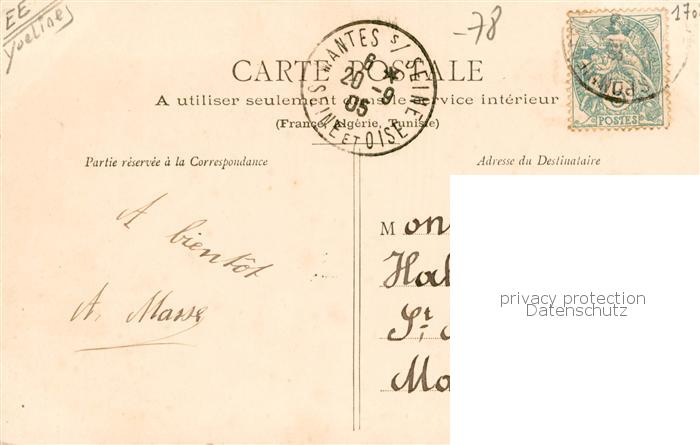 EE
Yvelines
-78
170
CARTE POSTALE
A utiliser seulement dans le service intérieur
(France, Algérie, Tunisie)
MANTES S/ SEINE
6
20 -9
05
SEINE ET OISE
POSTES
Partie réservée à la Correspondance
Adresse du Destinataire
A bientôt
A. Masse
Mon
Hal
St
Ma
privacy protection
Datenschutz